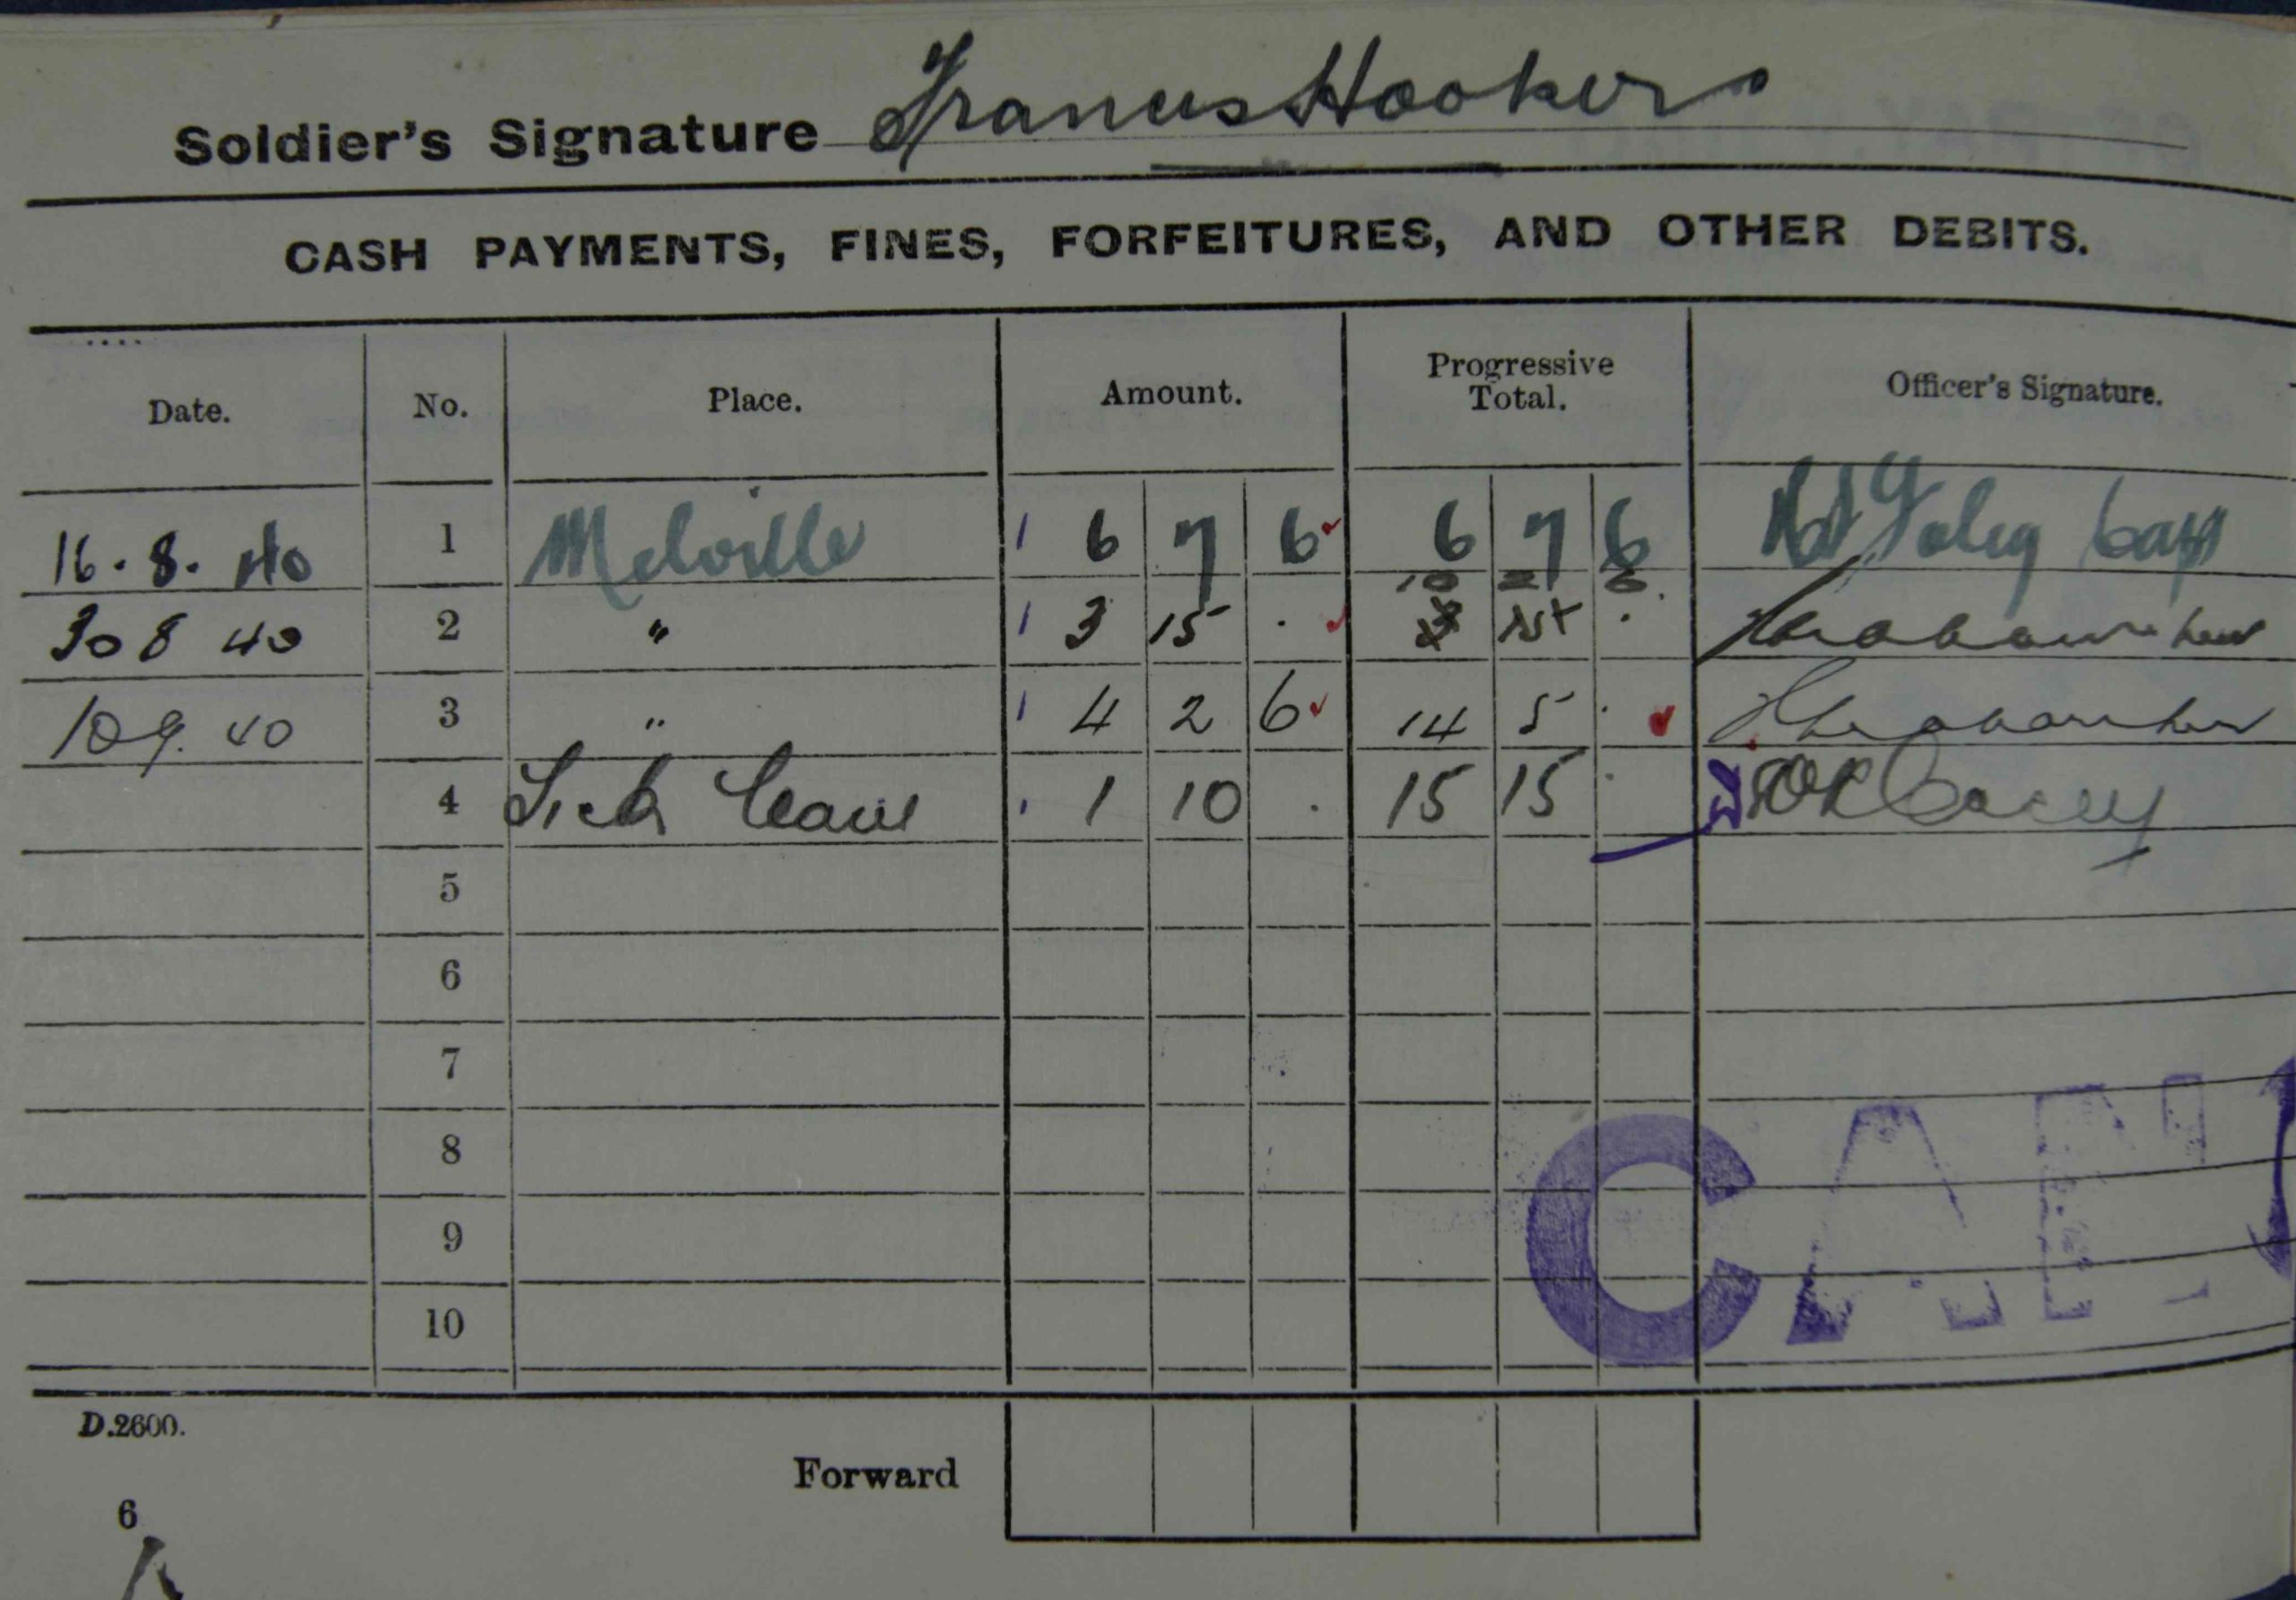 Soldier's Signature Francis Hooker
CASH PAYMENTS, FINES, FORFEITURES, AND OTHER DEBITS.
Date. No. Place. Amount. Progressive Total. Officer's Signature.
16.8.40 1 Melville 6 7 6 6 7 6 Foley Capt
10 2 6
30 8 40 2 " 3 15 . 3 15 .
10 9. 40 3 " 4 2 6 14 5 .
4 Sick Leave 1 10 . 15 15 .
5
6
7
8
9
10
D.2600.
Forward
6